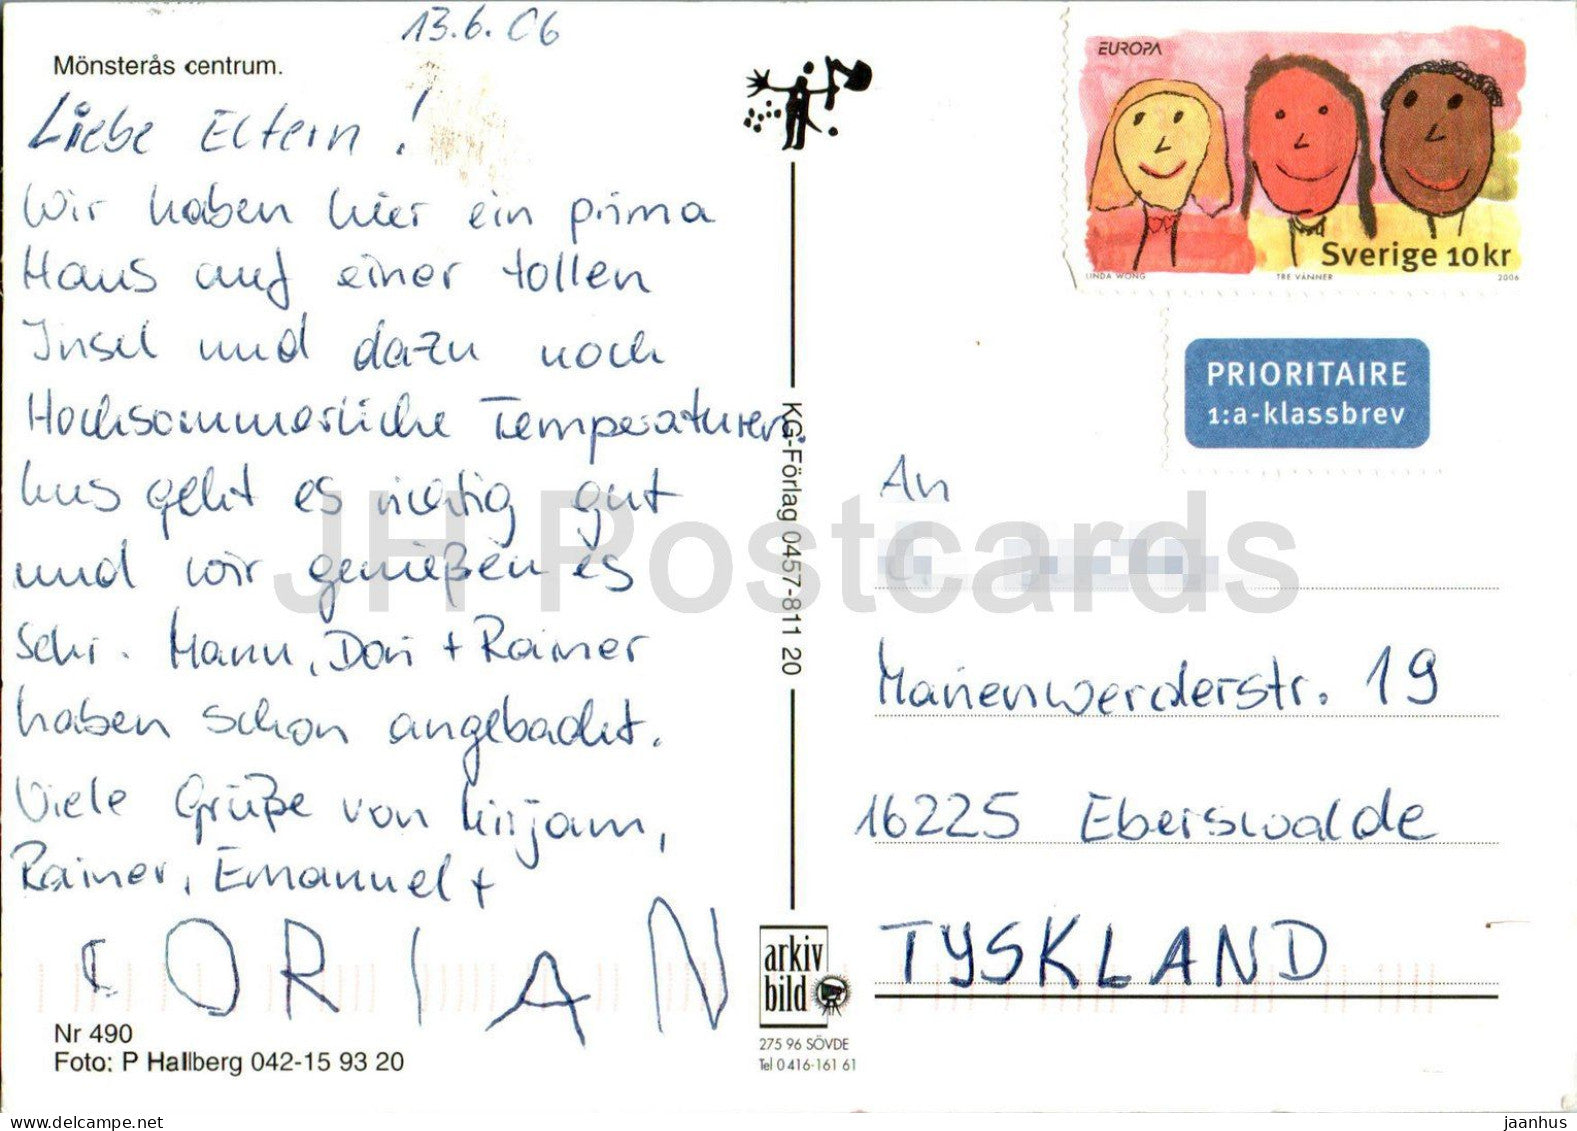 13.6.06
Mönsterås centrum.
Liebe Eltern!
Wir haben hier ein prima
Haus auf einer tollen
Insel und dazu noch
Hochsommerliche Temperaturen.
Uns geht es richtig gut
und wir genießen es
sehr. Mann, Dori + Rainer
haben schon angebadet.
Viele Grüße von Mirjam,
Rainer, Emanuel +
DORIAN
Nr 490
Foto: P Hallberg 042-15 93 20
KG-Förlag 0457-811 20
arkiv
bild
275 96 SÖVDE
Tel 0416-161 61
EUROPA
Sverige 10kr
LINDA WONG TRE VÄNNER 2006
PRIORITAIRE
1:a-klassbrev
An
Marienwerderstr. 19
16225 Eberswalde
TYSKLAND
JH Postcards
jaanhus